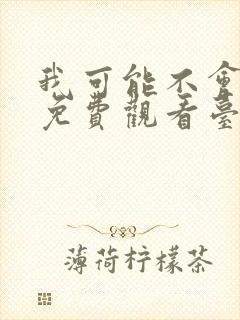 我可能不會
免費觀看臺
薄荷柠檬茶